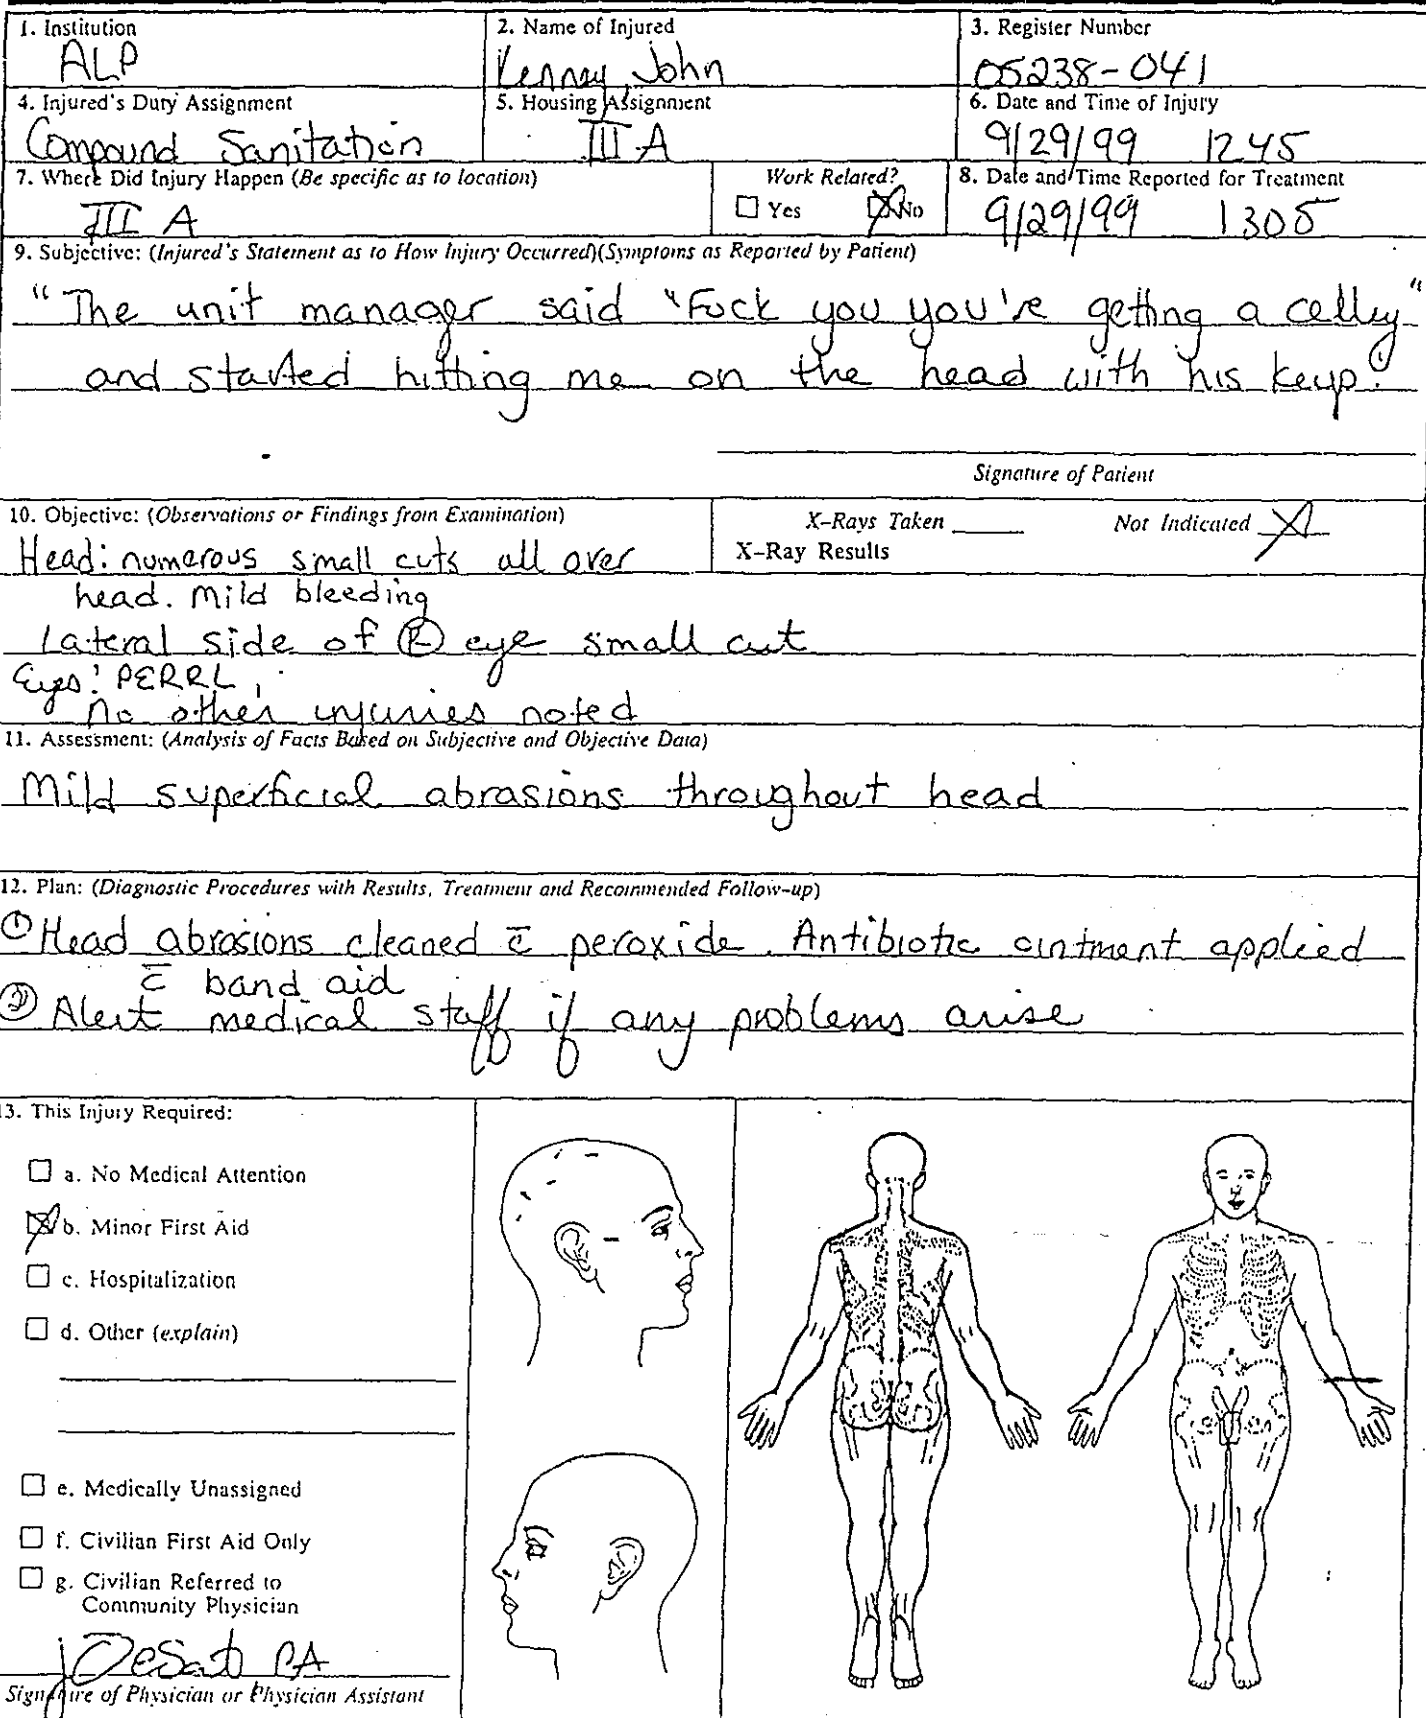 1. Institution
ALP
2. Name of Injured
Kenney, John
3. Register Number
05238-041
4. Injured's Duty Assignment
Compound Sanitation
5. Housing Assignment
III A
6. Date and Time of Injury
9/29/99 1245
7. Where Did Injury Happen (Be specific as to location)
III A
Work Related?
Yes No
8. Date and Time Reported for Treatment
9/29/99 1305
9. Subjective: (Injured's Statement as to How Injury Occurred)(Symptoms as Reported by Patient)
"The unit manager said "Fuck you you're getting a celly"
and started hitting me on the head with his keys."
Signature of Patient
10. Objective: (Observations or Findings from Examination)
X-Rays Taken Not Indicated X
X-Ray Results
Head: numerous small cuts all over
head. Mild bleeding
Lateral side of Ⓡ eye small cut
Eyes: PERRL,
no other injuries noted
11. Assessment: (Analysis of Facts Based on Subjective and Objective Data)
Mild superficial abrasions throughout head
12. Plan: (Diagnostic Procedures with Results, Treatment and Recommended Follow-up)
① Head abrasions cleaned c̄ peroxide. Antibiotic ointment applied
c̄ band aid
② Alert medical staff if any problems arise
13. This Injury Required:
a. No Medical Attention
b. Minor First Aid
c. Hospitalization
d. Other (explain)
e. Medically Unassigned
f. Civilian First Aid Only
g. Civilian Referred to
Community Physician
PA
Signature of Physician or Physician Assistant